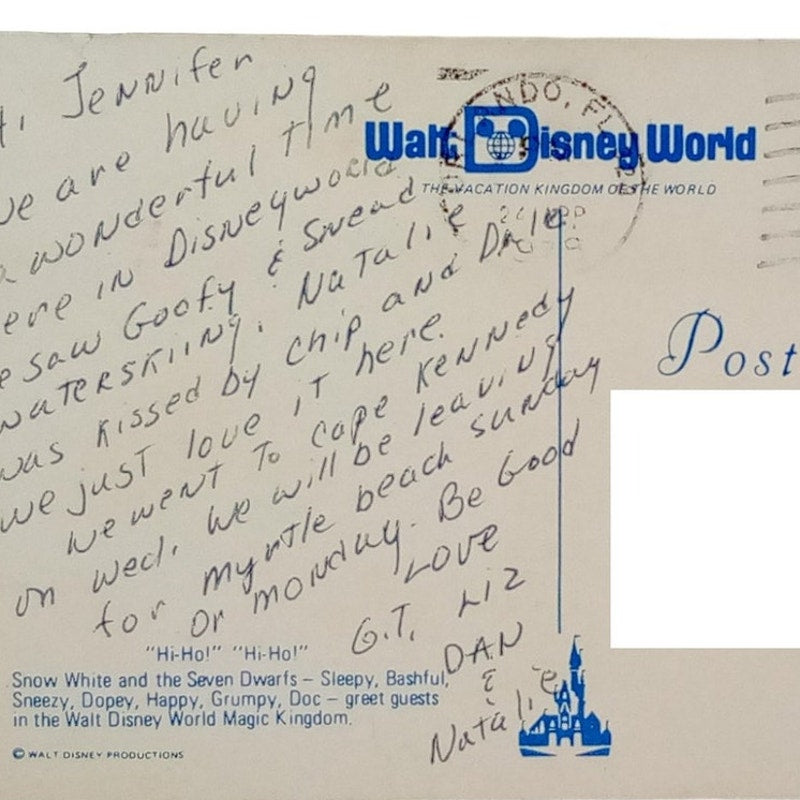 Hi, Jennifer
we are having
a wonderful time
here in Disneyworld
we saw Goofy & Snead
waterskiing. Natalie
was kissed by Chip and Dale
we just love it here.
We went to Cape Kennedy
on Wed. We will be leaving
for Myrtle beach sunday
or monday. Be Good
Love
G.T. Liz
DAN
&
Natalie
Walt Disney World
THE VACATION KINGDOM OF THE WORLD
ORLANDO, FL
Post
"Hi-Ho!" "Hi-Ho!"
Snow White and the Seven Dwarfs – Sleepy, Bashful,
Sneezy, Dopey, Happy, Grumpy, Doc – greet guests
in the Walt Disney World Magic Kingdom.
© WALT DISNEY PRODUCTIONS